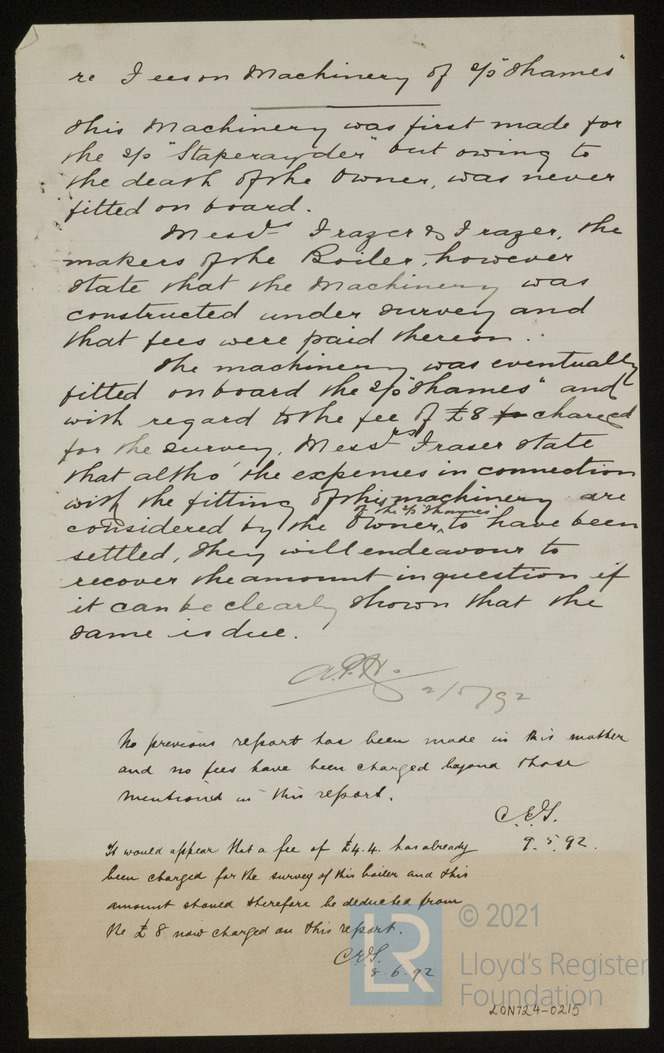 re Fees on Machinery of s/s "Thames"
This Machinery was first made for
the s/s "Staperayder" but owing to
the death of the Owner, was never
fitted on board.
Messrs Frazer & Frazer, the
makers of the Boiler, however
state that the Machinery was
constructed under survey and
that fees were paid thereon.
The machinery was eventually
fitted on board the s/s "Thames" and
with regard to the fee of £8 charged
for the survey, Messrs Fraser state
that altho' the expenses in connection
with the fitting of this machinery are
considered by the Owner of the s/s "Thames" to have been
settled, they will endeavour to
recover the amount in question if
it can be clearly shown that the
same is due.
2/5/92
No previous report has been made in this matter
and no fees have been charged beyond those
mentioned in this report.
9.5.92.
It would appear that a fee of £4.4. has already
been charged for the survey of this boiler and this
amount should therefore be deducted from
the £8 now charged on this report.
8.6.92
LR
© 2021
Lloyd's Register
Foundation
LON724-0215